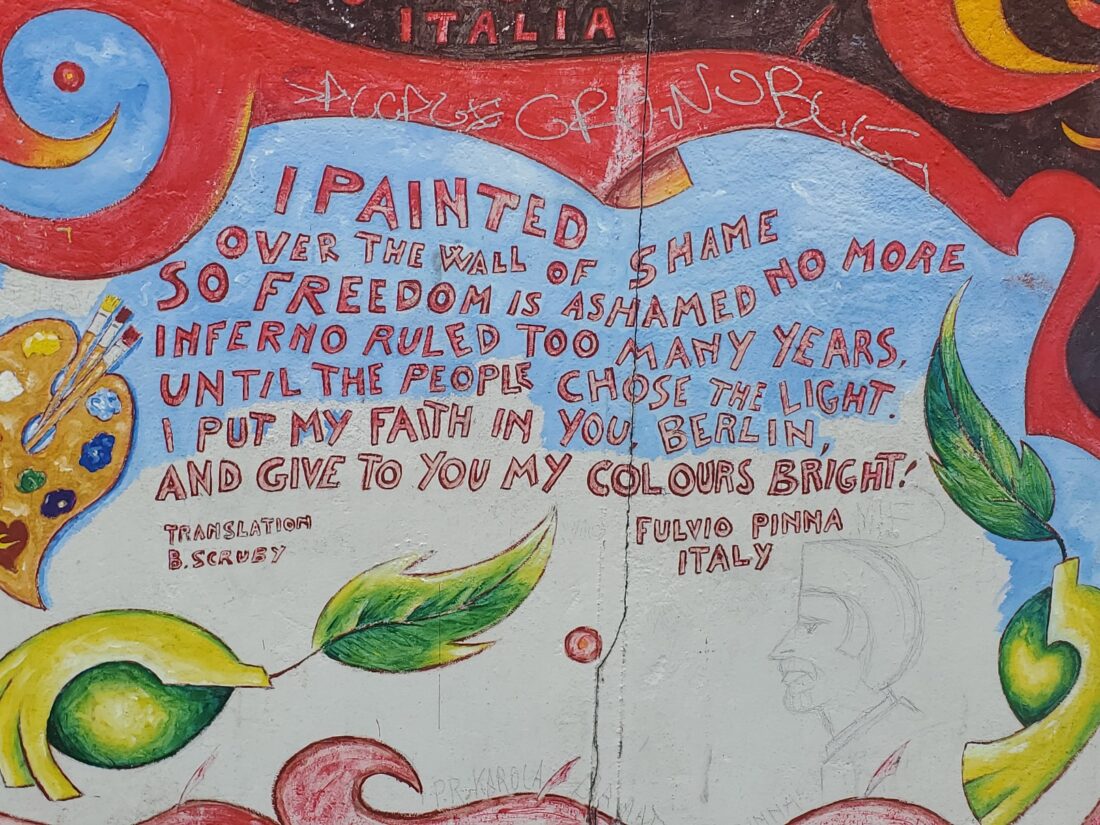 ITALIA
I PAINTED
OVER THE WALL OF SHAME
SO FREEDOM IS ASHAMED NO MORE
INFERNO RULED TOO MANY YEARS,
UNTIL THE PEOPLE CHOSE THE LIGHT.
I PUT MY FAITH IN YOU, BERLIN,
AND GIVE TO YOU MY COLOURS BRIGHT!
TRANSLATION
B. SCRUBY
FULVIO PINNA
ITALY